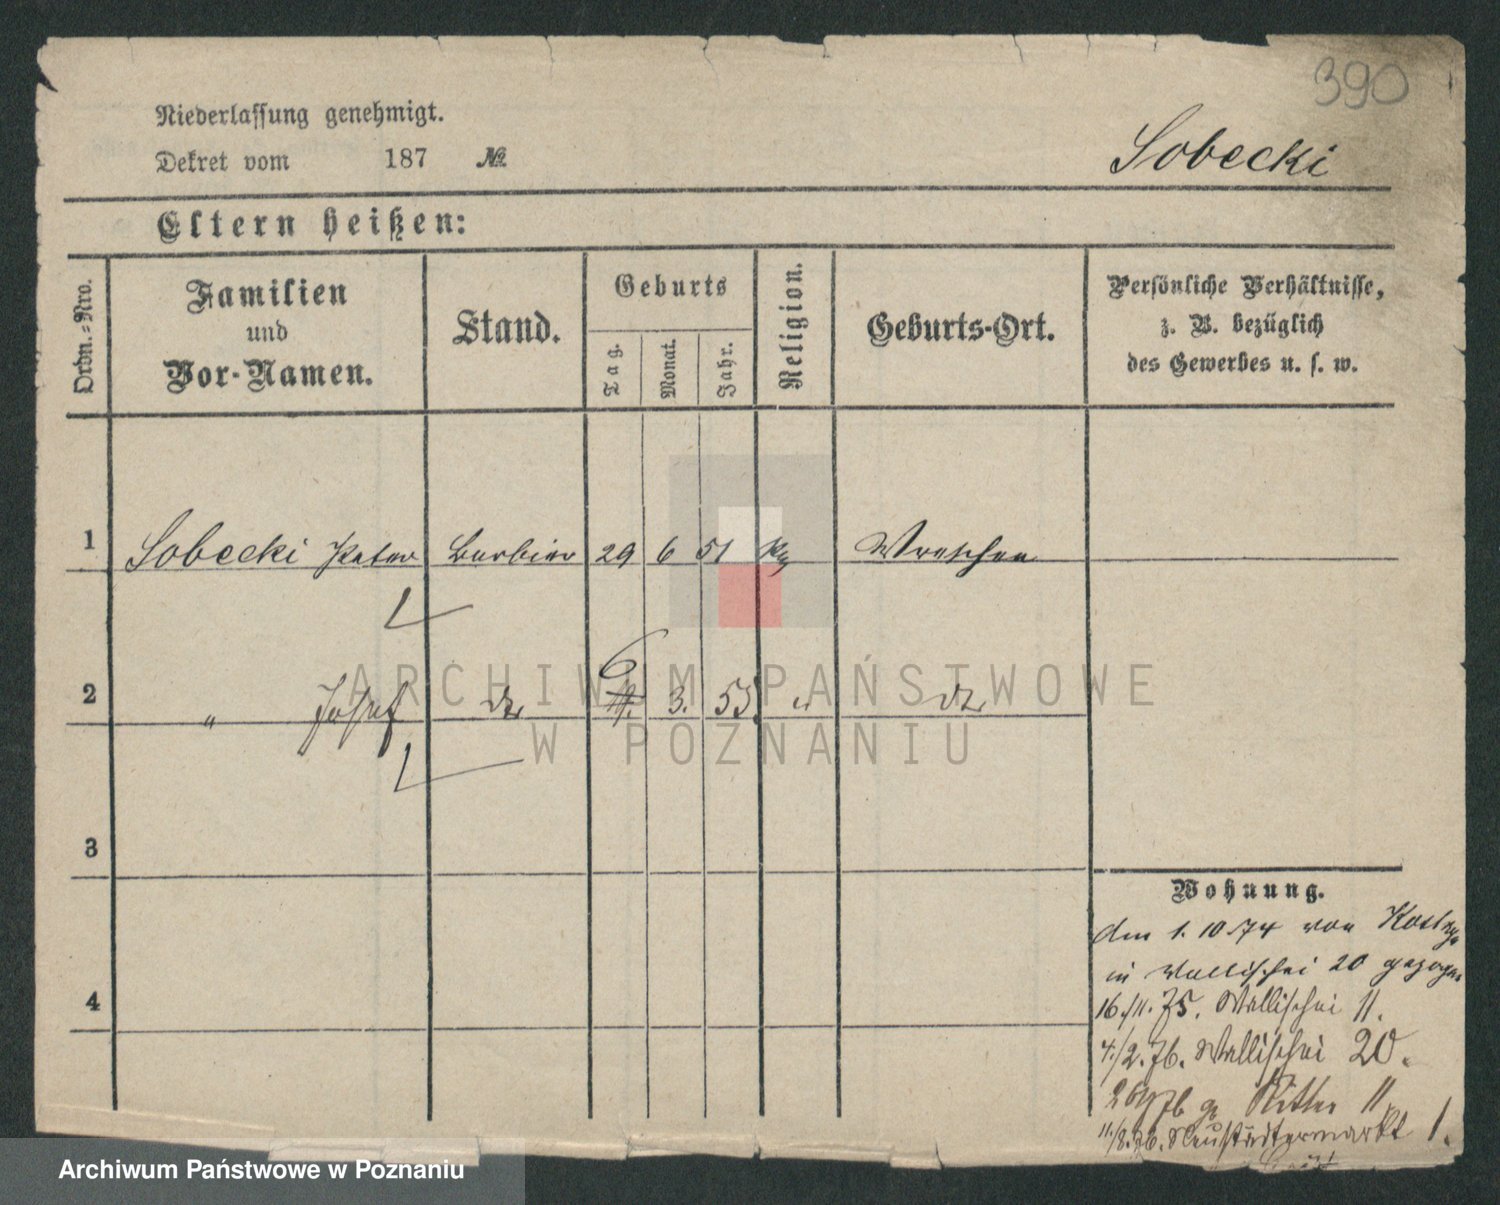 390
Niederlassung genehmigt.
Dekret vom 187 №
Sobecki
Eltern heißen:
Ordn.-Nro.
Familien
und
Vor-Namen.
Stand.
Geburts
Tag.
Monat.
Jahr.
Religion.
Geburts-Ort.
Persönliche Verhältnisse,
z. B. bezüglich
des Gewerbes u. s. w.
1 Sobecki Peter Barbier 29 6 51 Wreschen
2 " Josef 6 3. 53.
3
4
Wohnung.
den 1. 10 74 von
in Wallischei 20 gezogen
16./11. 75. Wallischei 11.
4./2. 76. Wallischei 20.
Ritter 11
11./8. 76. Neustädtermarkt 1.
ARCHIWUM PAŃSTWOWE
W POZNANIU
Archiwum Państwowe w Poznaniu